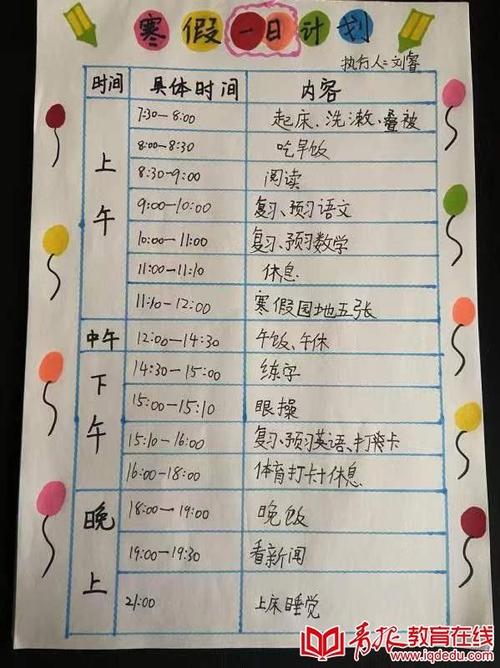 寒假一日计划
执行人:刘睿
时间 具体时间 内容
上午 7:30—8:00 起床、洗漱、叠被
8:00—8:30 吃早饭
8:30—9:00 阅读
9:00—10:00 复习、预习语文
10:00—11:00 复习、预习数学
11:00—11:10 休息
11:10—12:00 寒假园地五张
中午 12:00—14:30 午饭、午休
下午 14:30—15:00 练字
15:00—15:10 眼操
15:10—16:00 复习、预习英语、打卡
16:00—18:00 体育打卡十休息
晚上 18:00—19:00 晚饭
19:00—19:30 看新闻
21:00 上床睡觉
青报教育在线
www.iqdedu.com